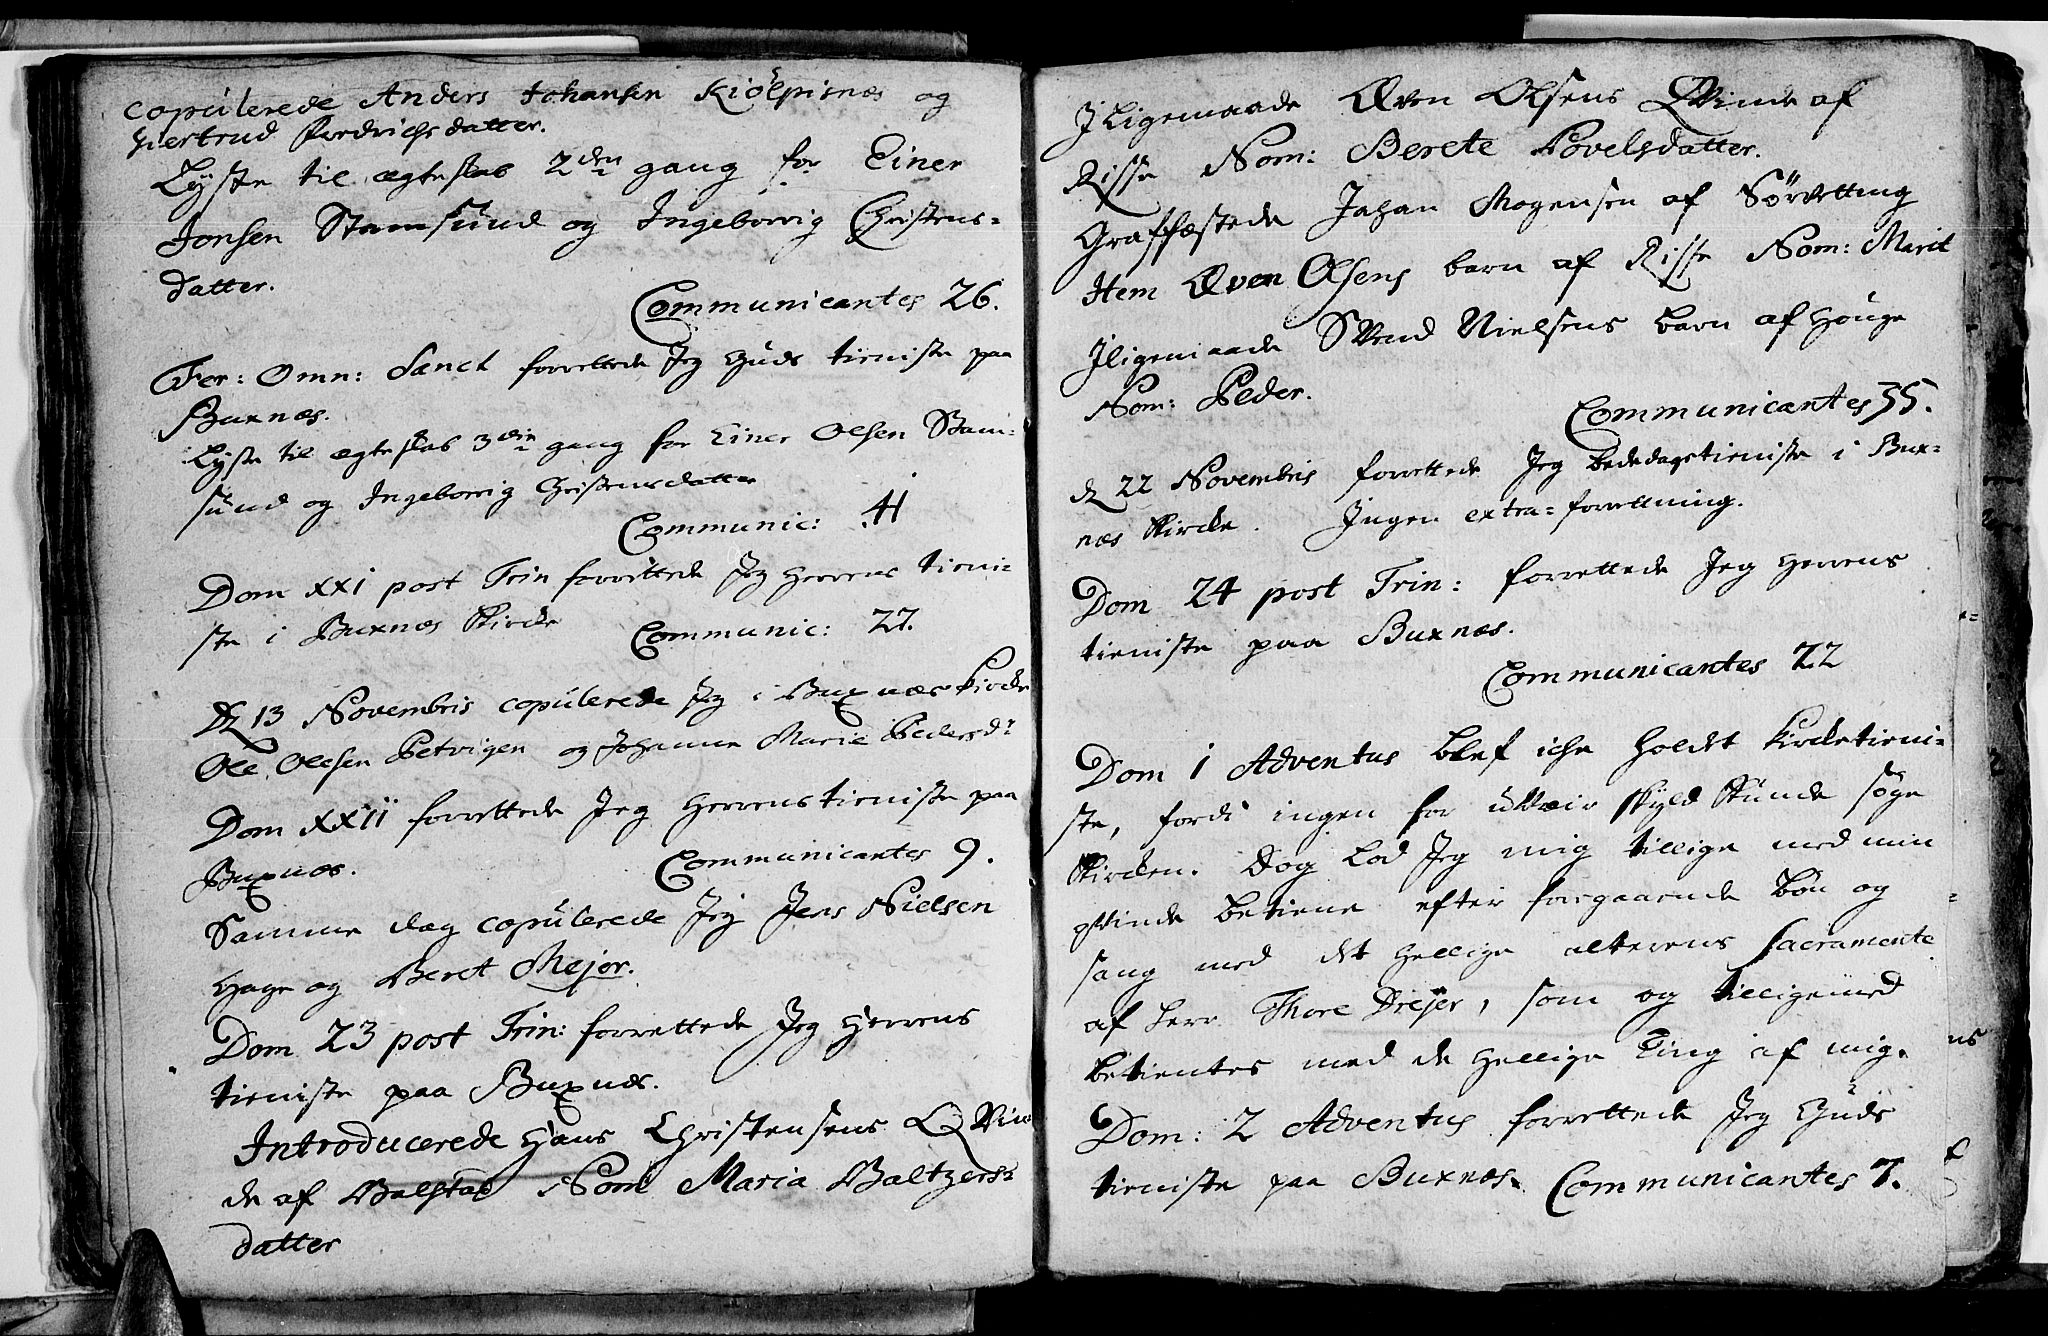 copulerede Anders Johansen Kiölpisnæs og
Giertrud Fredrichsdatter.
Lyste til ægteskab 2den gang for Einer
Jonsen Stamsund og Ingeborrig Christens-
datter.
Communicantes 26.
Fer: Omn: Sanct forrettede Jeg Guds tieniste paa
Buxnæs.
Lyste til ægteskab 3die gang for Einer Olsen Stam-
sund og Ingeborrig Christensdatter
Communic: 41
Dom XXI post Trin forrettede Jeg Herrens tieni-
ste i Buxnæs Kircke
Communic: 27.
D 13 Novembris copulerede Jeg i Buxnæs Kircke
Ole Olesen Petvigen og Johanna Marie Pedersd:
Dom XXII forrettede Jeg Herrens tieniste paa
Buxnæs.
Communicantes 9.
Samme dag copulerede Jeg Jens Nielsen
Hage og Beret Mejer.
Dom 23 post Trin: forrettede Jeg Herrens
tieniste paa Buxnæs.
Introducerede Hans Christensens Qvin-
de af Balstad Nom: Maria Baltzers-
datter
Iligemaade Even Olsens Qvinde af
Risse Nom: Berete Povelsdatter.
Graffæstede Johan Mogensen af Sörvetting
Item Even Olsens barn af Risse Nom: Marit
Iligemaade Svend Nielsens barn af Houge
Nom: Peder.
Communicantes 35.
D 22 Novembris forrettede Jeg bededagstieniste i Bux-
næs Kircke. Ingen extra-forretning.
Dom 24 post Trin: forrettede Jeg Herrens
tieniste paa Buxnæs.
Communicantes 22
Dom 1 Adventus blef iche holdt kircketieni-
ste, fordi ingen for uveir skyld kunde söge
Kircken. Dog lod Jeg mig tillige med min
qvinde betiene efter foregaaende bön og
sang med det hellige alterens sacramente
af Herr Thore Drejer, som og tilligemed
betientes med de hellige ting af mig.
Dom: 2 Adventus forrettede Jeg Guds
tieniste paa Buxnæs. Communicantes 7.